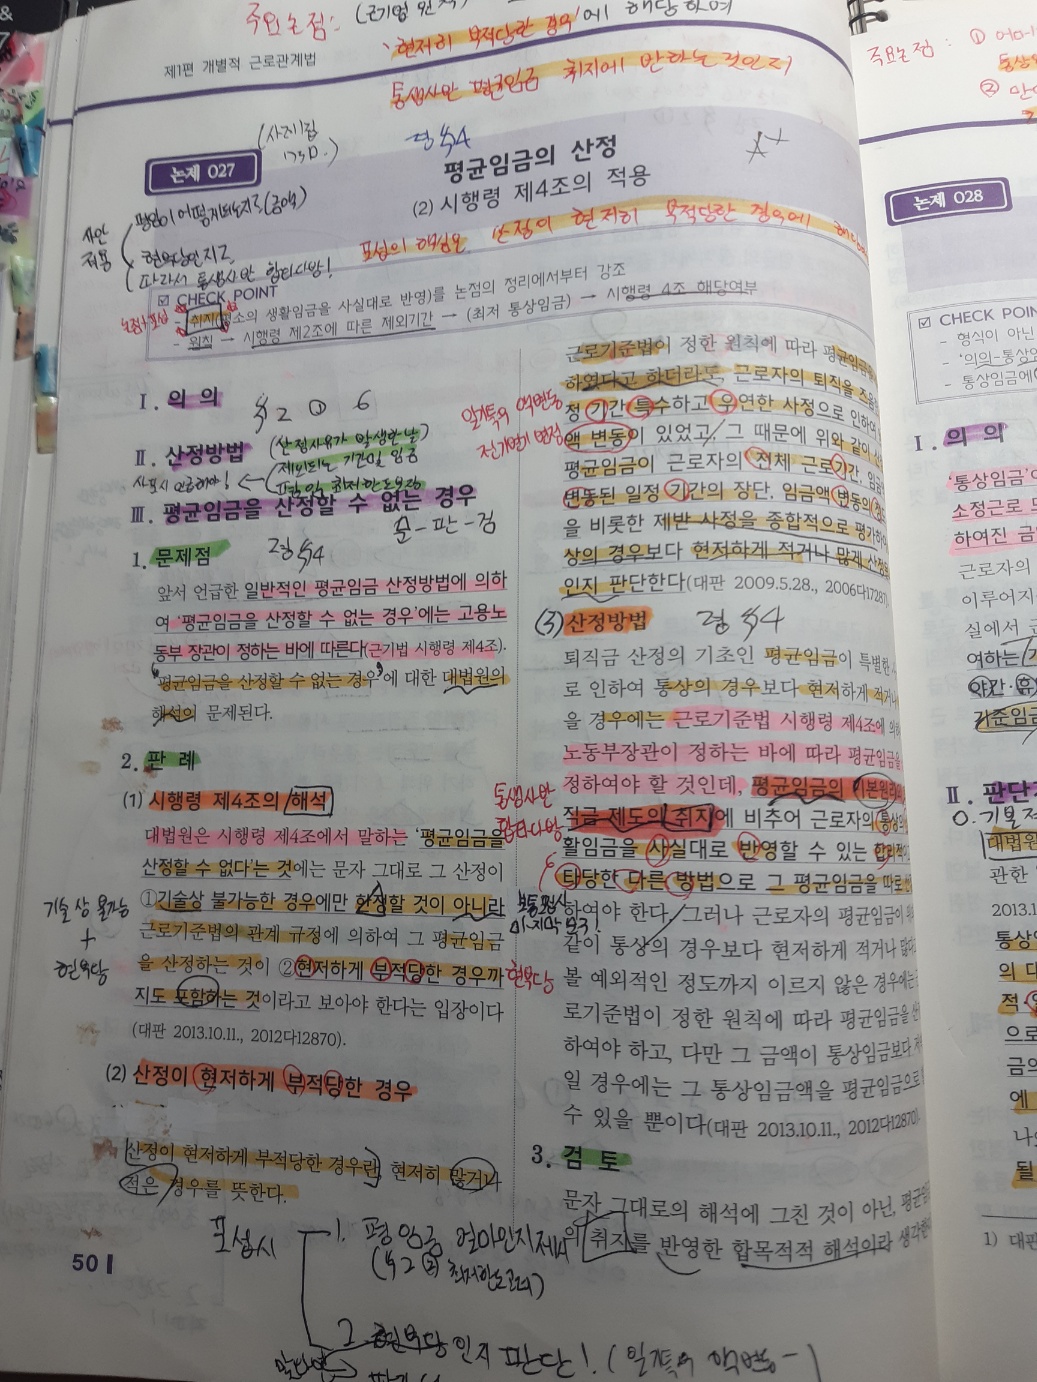 주요논점:
'현저히 부적당한 경우'에 해당하여
통생사안 평균임금 취지에 반하는 것인지
제1편 개별적 근로관계법
(사례집
173p.)
령 §4
논제 027
평균임금의 산정
(2) 시행령 제4조의 적용
사안
적용
현부당인지도
따라서 통생사안 합타다방!
포섭의 핵심은 산정이 현저히 부적당한 경우에
CHECK POINT
취지(평소의 생활임금을 사실대로 반영)를 논점의 정리에서부터 강조
- 원칙 → 시행령 제2조에 따른 제외기간 → (최저 통상임금) → 시행령 4조 해당여부
Ⅰ. 의 의
§2 ① 6
Ⅱ. 산정방법
(산정사유가 발생한 날
제외되는 기간및 임금
Ⅲ. 평균임금을 산정할 수 없는 경우
문-판-검
1. 문제점
령 §4
앞서 언급한 일반적인 평균임금 산정방법에 의하
여 '평균임금을 산정할 수 없는 경우'에는 고용노
동부 장관이 정하는 바에 따른다(근기법 시행령 제4조).
'평균임금을 산정할 수 없는 경우'에 대한 대법원의
해석이 문제된다.
2. 판 례
(1) 시행령 제4조의 해석
대법원은 시행령 제4조에서 말하는 '평균임금을
산정할 수 없다'는 것에는 문자 그대로 그 산정이
①기술상 불가능한 경우에만 한정할 것이 아니라
근로기준법의 관계 규정에 의하여 그 평균임금
을 산정하는 것이 ②현저하게 부적당한 경우까
지도 포함하는 것이라고 보아야 한다는 입장이다
(대판 2013.10.11., 2012다12870).
기술상 불가능
+
현부당
(2) 산정이 현저하게 부적당한 경우
산정이 현저하게 부적당한 경우란, 현저히 많거나
적은 경우를 뜻한다.
포섭시
1. 평임금 얼마인지 제시
2. 현부당인지 판단! (일기특우 액변동-)
50
근로기준법이 정한 원칙에 따라 평균임금
하였다고 하더라도, 근로자의 퇴직을 즈음
정 기간 특수하고 우연한 사정으로 인하여
액 변동이 있었고, 그 때문에 위와 같이
평균임금이 근로자의 전체 근로기간, 임금
변동된 일정 기간의 장단, 임금액 변동의 정
을 비롯한 제반 사정을 종합적으로 평가하
상의 경우보다 현저하게 적거나 많게 산정
인지 판단한다(대판 2009.5.28., 2006다17287
일기특우 액변동
(3) 산정방법
령 §4
퇴직금 산정의 기초인 평균임금이 특별한
로 인하여 통상의 경우보다 현저하게 적거나
을 경우에는 근로기준법 시행령 제4조에 의
노동부장관이 정하는 바에 따라 평균임금을
정하여야 할 것인데, 평균임금의 기본원리와
직금 제도의 취지에 비추어 근로자의 통상의
활임금을 사실대로 반영할 수 있는 합리적이
타당한 다른 방법으로 그 평균임금을 따로
하여야 한다. 그러나 근로자의 평균임금이 위
같이 통상의 경우보다 현저하게 적거나 많다
볼 예외적인 정도까지 이르지 않은 경우에는
로기준법이 정한 원칙에 따라 평균임금을 산
하여야 하고, 다만 그 금액이 통상임금보다
일 경우에는 그 통상임금액을 평균임금으로
수 있을 뿐이다(대판 2013.10.11., 2012다12870).
통생사안
합타다방
현부당
3. 검 토
문자 그대로의 해석에 그친 것이 아닌, 평균
의 취지를 반영한 합목적적 해석이라 생각한
주요논점 : ①
②
논제 028
CHECK POIN
- 형식이 아닌
- '의의-통상임
- 통상임금에
Ⅰ. 의 의
'통상임금'
소정근로 또
하여진 금
근로자의
이루어지
실에서 근
여하는
야간·휴
기준임금
Ⅱ. 판단
대법원
관한
2013.1
통상
의 대
적·
으로
금의
에
나
될
1) 대판